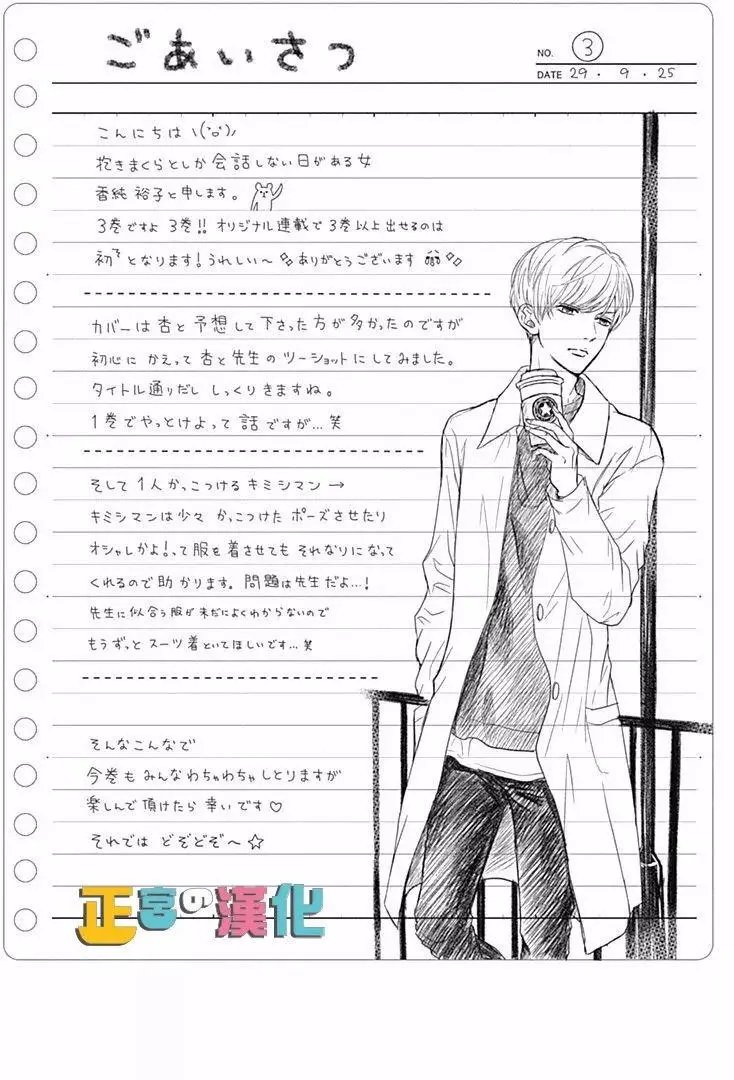 ごあいさつ
NO. 3
DATE 29・9・25
こんにちは ヽ(˙o˙)ﾉ
抱きまくらとしか会話しない日がある女
香純 裕子と申します。
3巻ですよ 3巻!! オリジナル連載で3巻以上出せるのは
初ぞとなります!うれしい〜 ありがとうございます
カバーは杏と予想して下さった方が多かったのですが
初心にかえって杏と先生のツーショットにしてみました。
タイトル通りだし しっくりきますね。
1巻でやっとけよって話ですが…笑
そして1人かっこつけるキミシマン→
キミシマンは少々かっこつけたポーズさせたり
オシャレかよ!って服を着させてもそれなりになって
くれるので助かります。問題は先生だよ…!
先生に似合う服が未だによくわからないので
もうずっとスーツ着といてほしいです…笑
そんなこんなで
今巻もみんなわちゃわちゃしとりますが
楽しんで頂けたら幸いです♡
それでは どぞどぞ〜☆
正宮の漢化